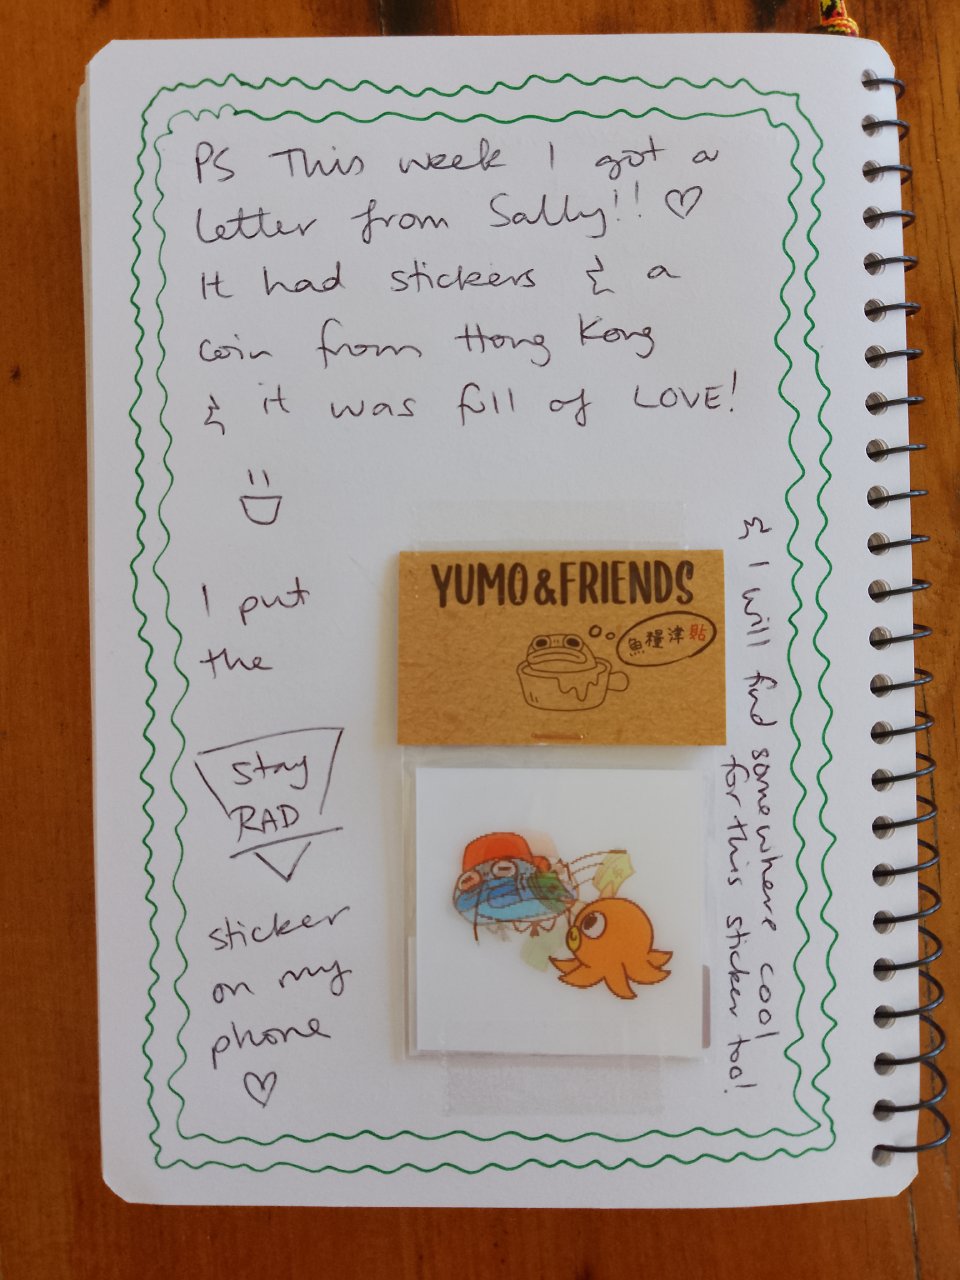 PS This week I got a
letter from Sally!! ♡
It had stickers & a
coin from Hong Kong
& it was full of LOVE!
I put
the
Stay
RAD
sticker
on my
phone
♡
YUMO&FRIENDS
魚糧津貼
& I will find somewhere cool
for this sticker too!